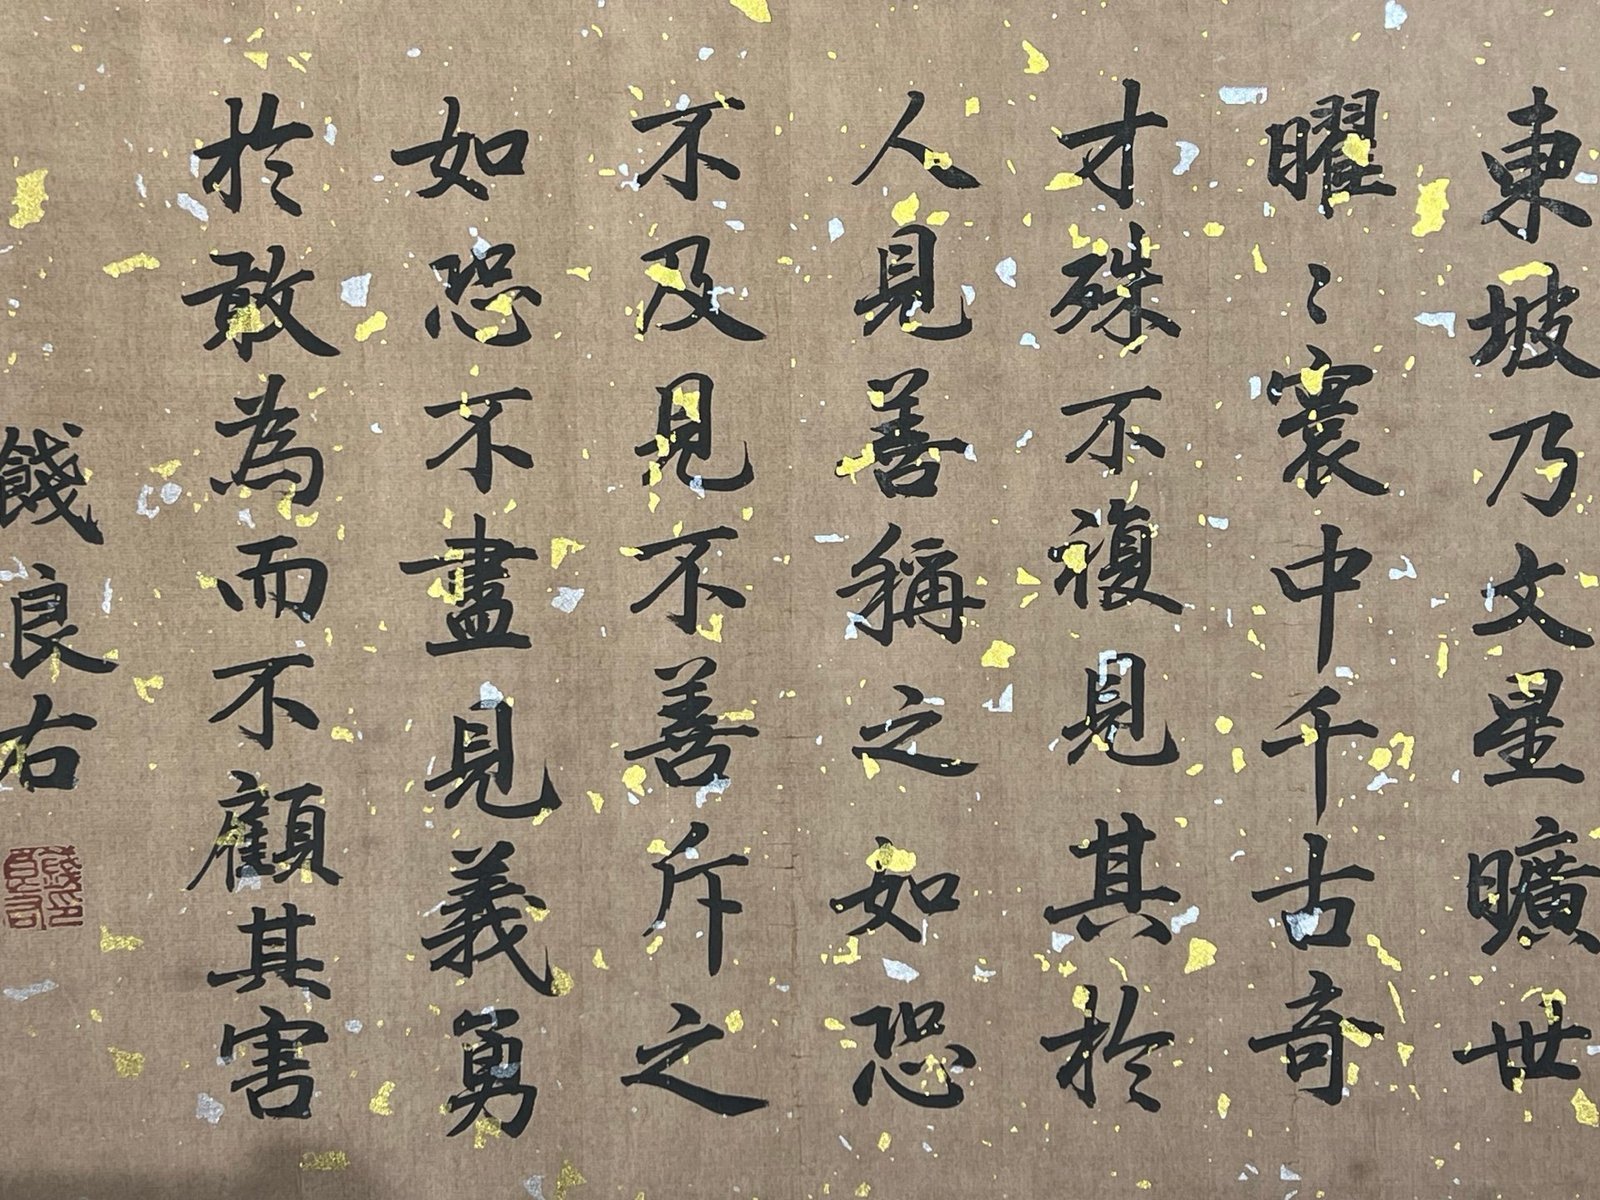 東坡乃文星曠世
曜〻寰中千古奇
才殊不復見其於
人見善稱之如恐
不及見不善斥之
如恐不盡見義勇
於敢為而不顧其害
餞良右